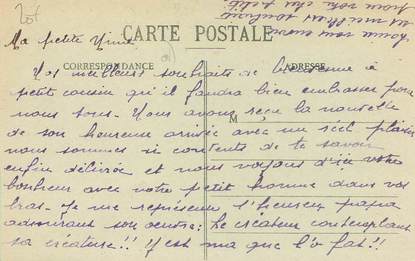 CARTE POSTALE
Ma petite
CORRESPONDANCE
ADRESSE
Nos meilleurs souhaits de bienvenue à
petit cousin qu'il faudra bien embrasser pour
nous tous. Nous avons reçu la nouvelle
M
de son heureuse arrivée avec un réel plaisir
nous sommes si contents de te savoir
enfin délivrée et nous voyons d'ici votre
bonheur avec votre petit homme dans vos
bras. Je me représente l'heureux papa
admirant son œuvre: Le créateur contemplant
sa créature!! Y'est ma que l'o fat!!